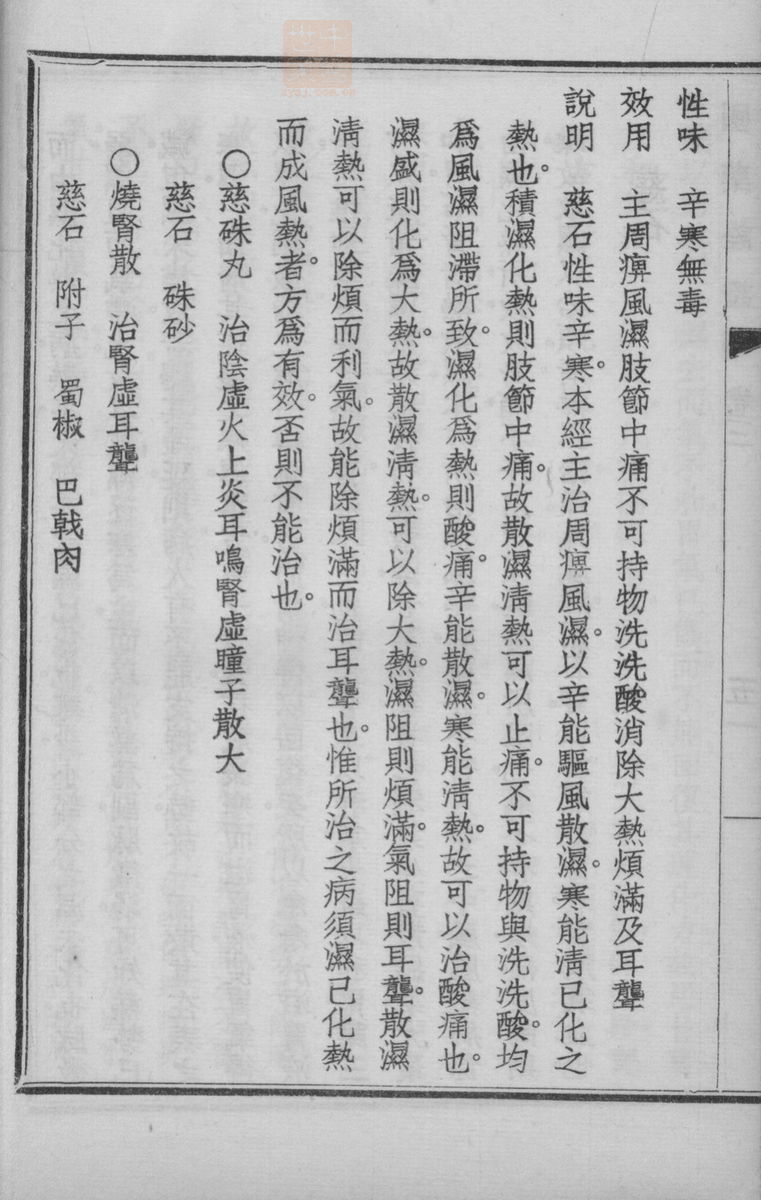 性味　辛寒無毒
效用　主周痹風濕肢節中痛不可持物洗洗酸消除大熱煩滿及耳聾
說明　慈石性味辛寒。本經主治周痹風濕。以辛能驅風散濕。寒能淸已化之
熱也。積濕化熱則肢節中痛。故散濕淸熱可以止痛。不可持物與洗洗酸。均
爲風濕阻滯所致。濕化爲熱則酸痛。辛能散濕。寒能淸熱。故可以治酸痛也。
濕盛則化爲大熱。故散濕淸熱。可以除大熱。濕阻則煩滿。氣阻則耳聾。散濕
淸熱可以除煩而利氣。故能除煩滿而治耳聾也。惟所治之病須濕已化熱
而成風熱者。方爲有效。否則不能治也。
○慈硃丸　治陰虛火上炎耳鳴腎虛瞳子散大
慈石　硃砂
○燒腎散　治腎虛耳聾
慈石　附子　蜀椒　巴戟肉